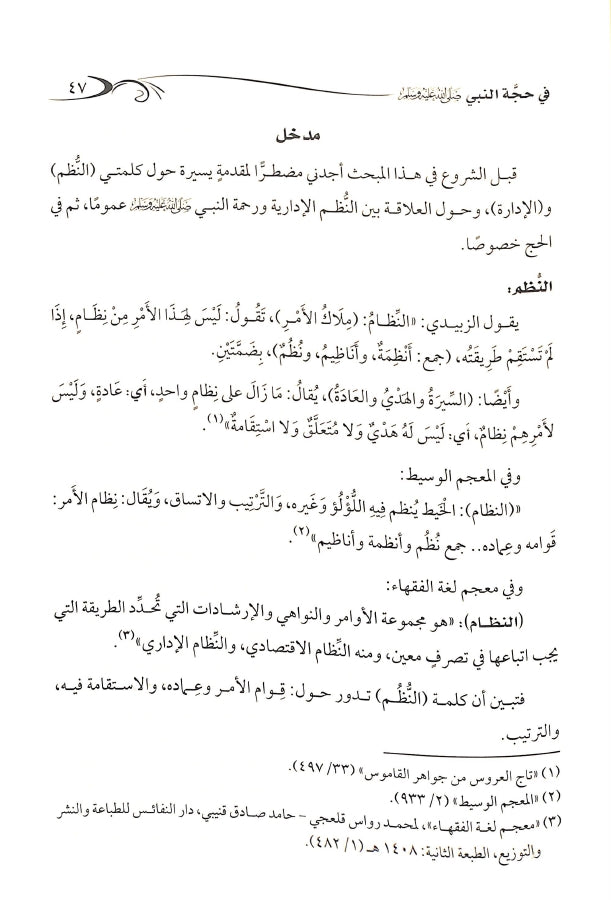 في حجَّة النبي ﷺ ٤٧
مدخل
قبل الشروع في هذا المبحث أجدني مضطرًّا لمقدمةٍ يسيرة حول كلمتي (النُّظم)
و(الإدارة)، وحول العلاقة بين النُّظم الإدارية ورحمة النبي ﷺ عمومًا، ثم في
الحج خصوصًا.
النُّظم:
يقول الزبيدي: «النِّظامُ: (مِلَاكُ الأَمْرِ)، تَقُولُ: لَيْسَ لِهَذَا الأَمْرِ مِنْ نِظَامٍ، إِذَا
لَمْ تَسْتَقِمْ طَرِيقَتُه، (جمع: أَنْظِمَةٌ، وأَنَاظِيمُ، ونُظُمٌ)، بِضَمَّتَيْنِ.
وأَيْضًا: (السِّيرَةُ والهَدْيُ والعَادَةُ)، يُقالُ: مَا زَالَ على نِظامٍ واحدٍ، أي: عَادةٍ، وَلَيْسَ
لأَمْرِهِمْ نِظامٌ، أي: لَيْسَ لَهُ هَدْيٌ وَلَا مُتَعَلَّقٌ وَلَا اسْتِقَامَةٌ»(١).
وفي المعجم الوسيط:
«(النظام): الخَيط يُنظم فِيهِ اللُّؤْلُؤ وَغَيره، وَالتَّرْتِيب والاتساق، وَيُقَال: نِظام الأمر:
قَوامه وعِماده.. جمع نُظُم وأنظمة وأناظيم»(٢).
وفي معجم لغة الفقهاء:
(النظام): «هو مجموعة الأوامر والنواهي والإرشادات التي تُحدِّد الطريقة التي
يجب اتباعها في تصرفٍ معين، ومنه النِّظام الاقتصادي، والنِّظام الإداري»(٣).
فتبين أن كلمة (النُّظُم) تدور حول: قِوام الأمر وعِماده، والاستقامة فيه،
والترتيب.
(١) «تاج العروس من جواهر القاموس» (٣٣/ ٤٩٧).
(٢) «المعجم الوسيط» (٢/ ٩٣٣).
(٣) «معجم لغة الفقهاء»، لمحمد رواس قلعجي - حامد صادق قنيبي، دار النفائس للطباعة والنشر
والتوزيع، الطبعة الثانية: ١٤٠٨ هـ (١/ ٤٨٢).